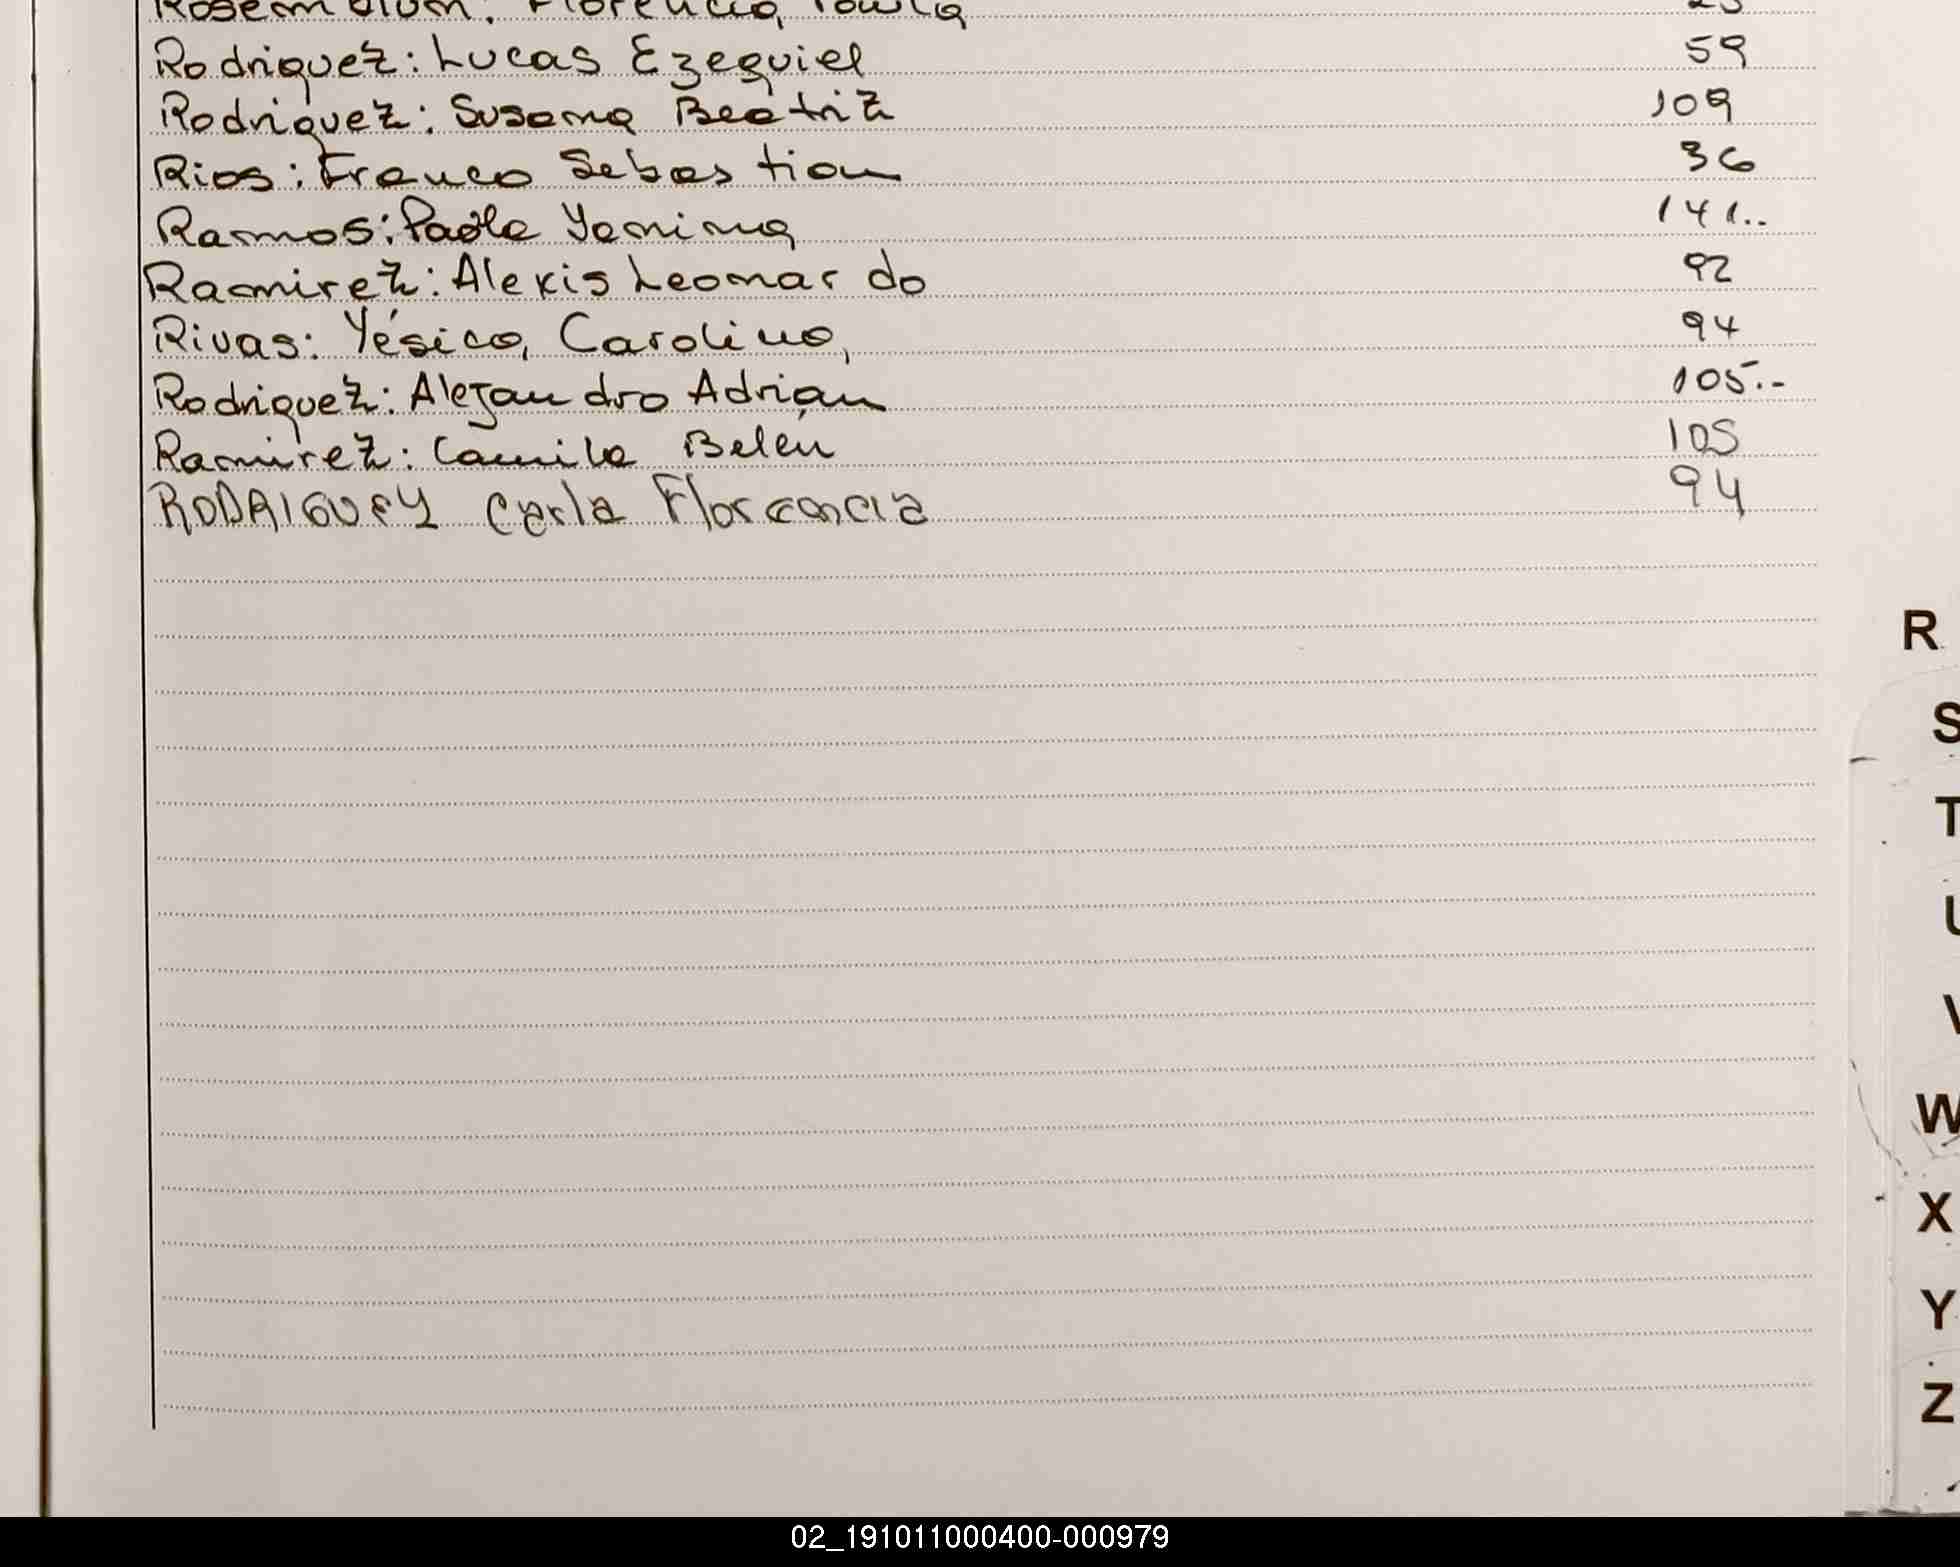 Rosemblum: Florencia, Paula 25
Rodriguez: Lucas Ezequiel 59
Rodriguez: Susana Beatriz 109
Rios: Franco Sebastian 36
Ramos: Paola Yanina 141..
Ramirez: Alexis Leonardo 92
Rivas: Yésica, Carolina, 94
Rodriguez: Alejandro Adrian 105.-
Ramirez: Camila Belén 105
RODRIGUEZ Carla Florencia 94
R
S
T
U
V
W
X
Y
Z
02_191011000400-000979